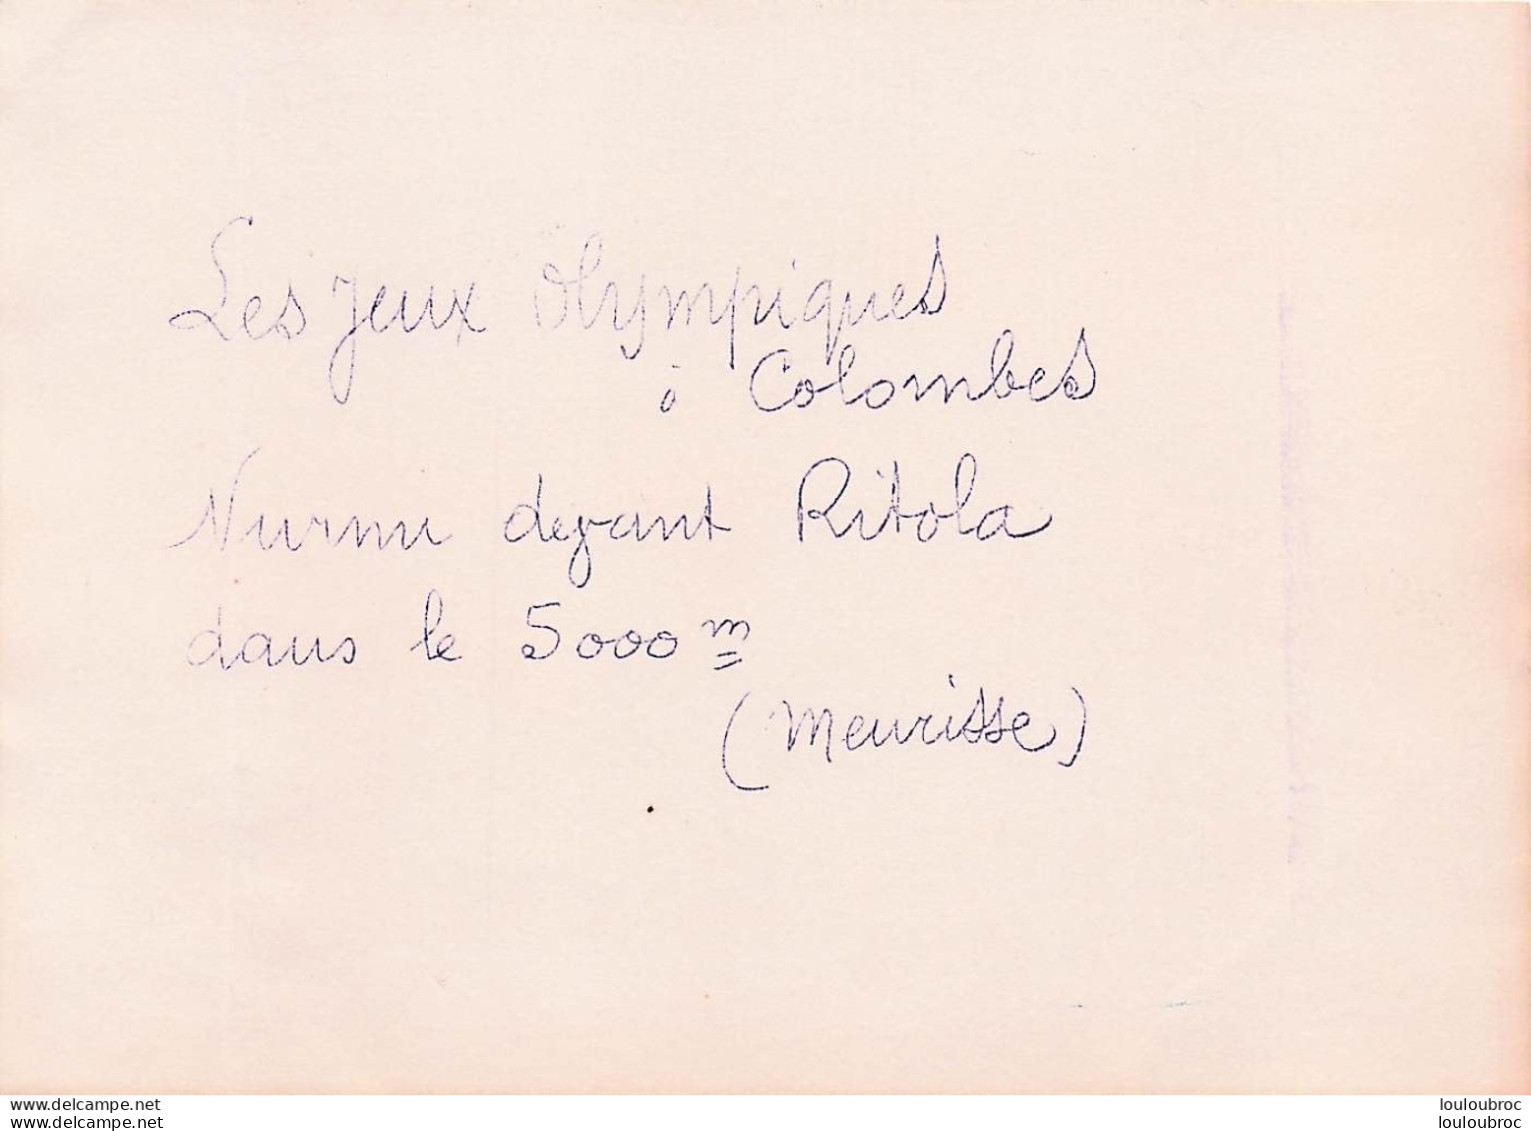 Les Jeux Olympiques
à Colombes
Nurmi devant Ritola
dans le 5000 m
(Meurisse)
www.delcampe.net
louloubroc
www.delcampe.net
louloubroc